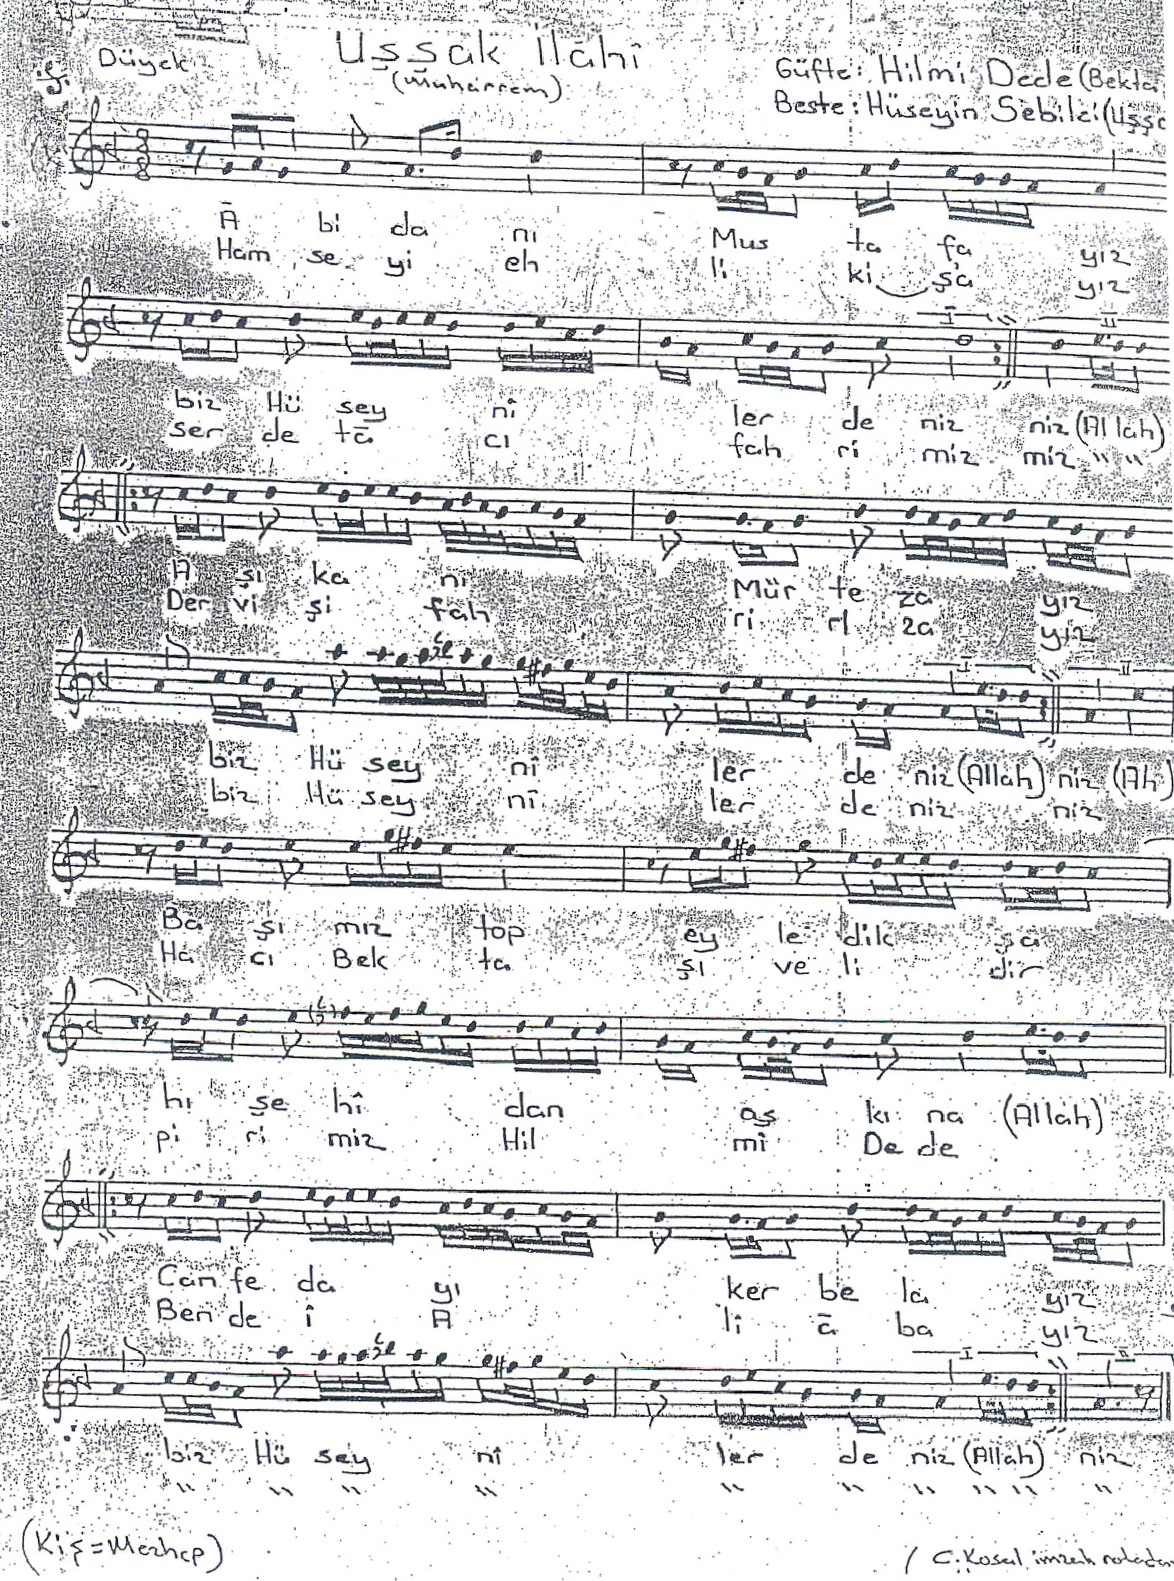 Uşşak İlâhî
Düyek
(Muharrem)
Güfte: Hilmi Dede (Bekta
Beste: Hüseyin Sebilci (Uşşa
Ā bi da nı Mus ta fa yız
Ham se yi eh li ki şa yız
I II
biz Hü sey nî ler de niz niz (Allah)
ser de tā cı fah ri miz miz " "
Ā şı ka nı Mür te za yız
Der vi şi fah ri rı za yız
I II
biz Hü sey nî ler de niz (Allah) niz (Ah)
biz Hü sey nî ler de niz niz
Ba şı mız top ey le dik şa
Ha cı Bek ta şı ve li dir
hı şe hî dan aş kı na (Allah)
pi ri miz Hil mî De de
Can fe da yı ker be la yız
Ben de î A li ā ba yız
I II
biz Hü sey nî ler de niz (Allah) niz
" " " " " " " " " "
(Kiş = Mezhep)
C. Kosal